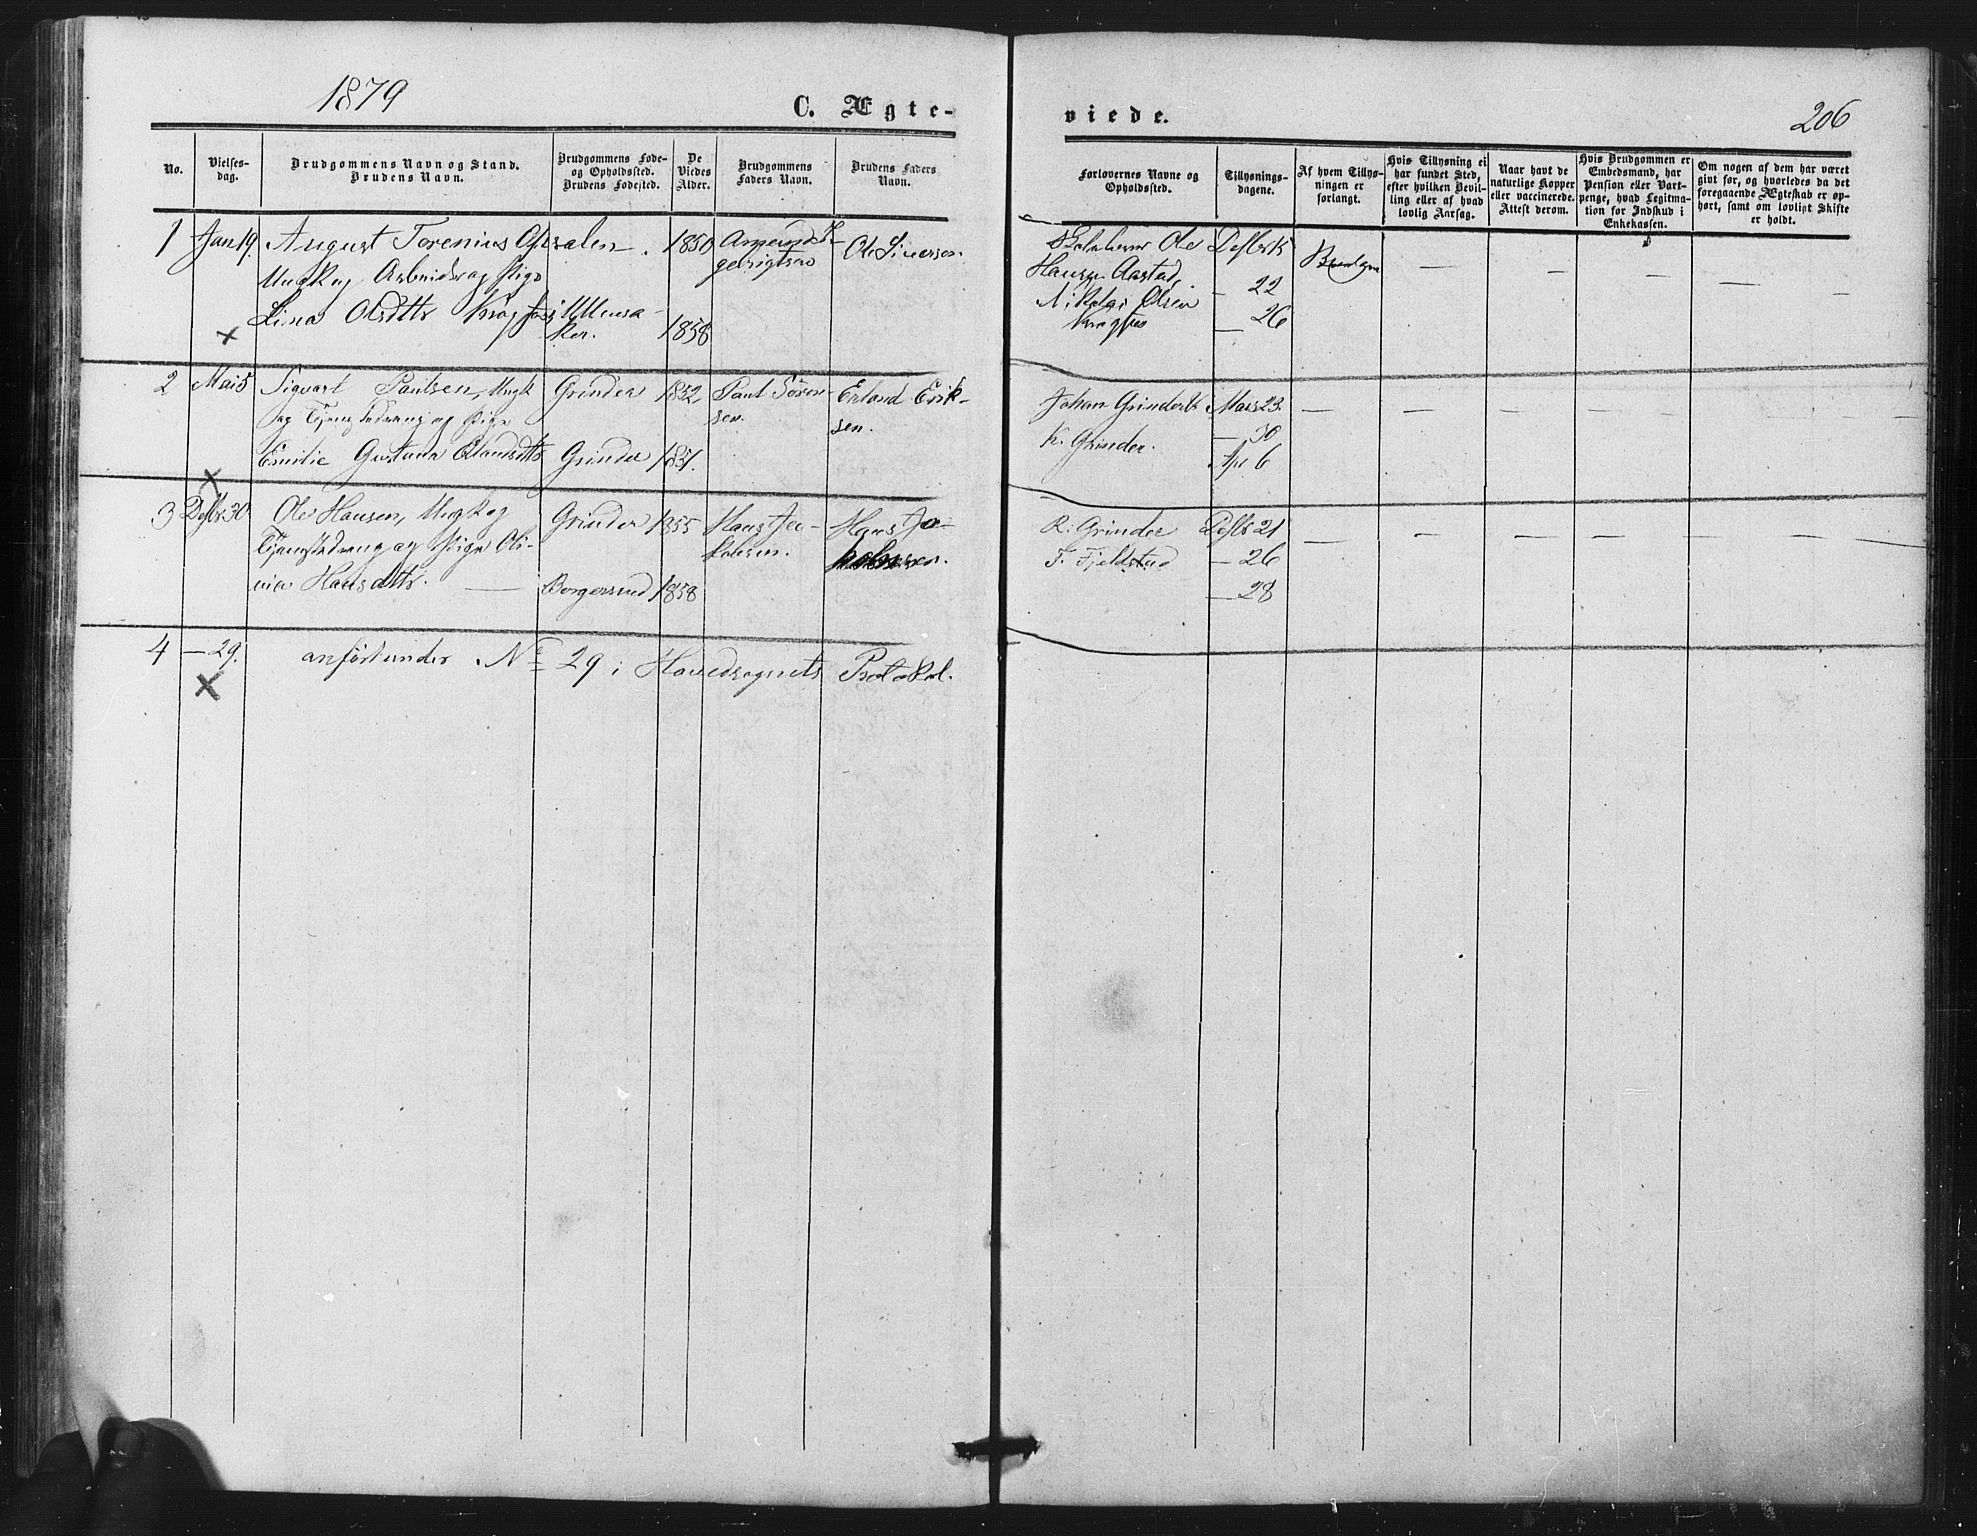 1879
C. Ægte-
viede.
206
No.
Vielses-
dag.
Brudgommens Navn og Stand.
Brudens Navn.
Brudgommens Føde-
og Opholdssted.
Brudens Fødested.
De
Viedes
Alder.
Brudgommens
Faders Navn.
Brudens Faders
Navn.
Forlovernes Navne og
Opholdssted.
Tillysnings-
dagene.
Af hvem Tillys-
ningen er
forlangt.
Hvis Tillysning ei
har fundet Sted,
efter hvilken Bevil-
ling eller af hvad
lovlig Aarsag.
Naar havt de
naturlige Kopper
eller vaccinerede.
Attest derom.
Hvis Brudgommen er
Embedsmand, har
Pension eller Vart-
penge, hvad Legitima-
tion for Indskud i
Enkekassen.
Om nogen af dem har været
givt før, og hvorledes da det
foregaaende Ægteskab er op-
hørt, samt om lovligt Skifte
er holdt.
1 Jan 19. August Torenius 1850 Ole Siversen.
Ungk og Arbeider og Pige
Lina Olsdtr 1858
Ullensa-
ker.
Ole
Hansen Aastad,
Nikolai Olsen
Desbr 15
— 22
— 26
2 Mai 5 Sigvart Paulsen, Ungk Grinder 1852 Paul Søren-
sen.
Erland Erik-
sen.
og Pige
Emilie Gustava Erlandsdtr Grinder 1857.
Johan Grinder
K. Grinder.
Mars 23.
— 30
Apr 6
3 Desbr 30 Ole Hansen, Ungk og Grinder 1855 Hans Ja-
kobsen.
Hans Jo-
og Pige Oli-
via Hansdtr. — 1858
R. Grinder
T. Fjeldstad
Desbr 21
— 26
— 28
4 — 29. anført under No 29 i Hovedsognets Protokol.